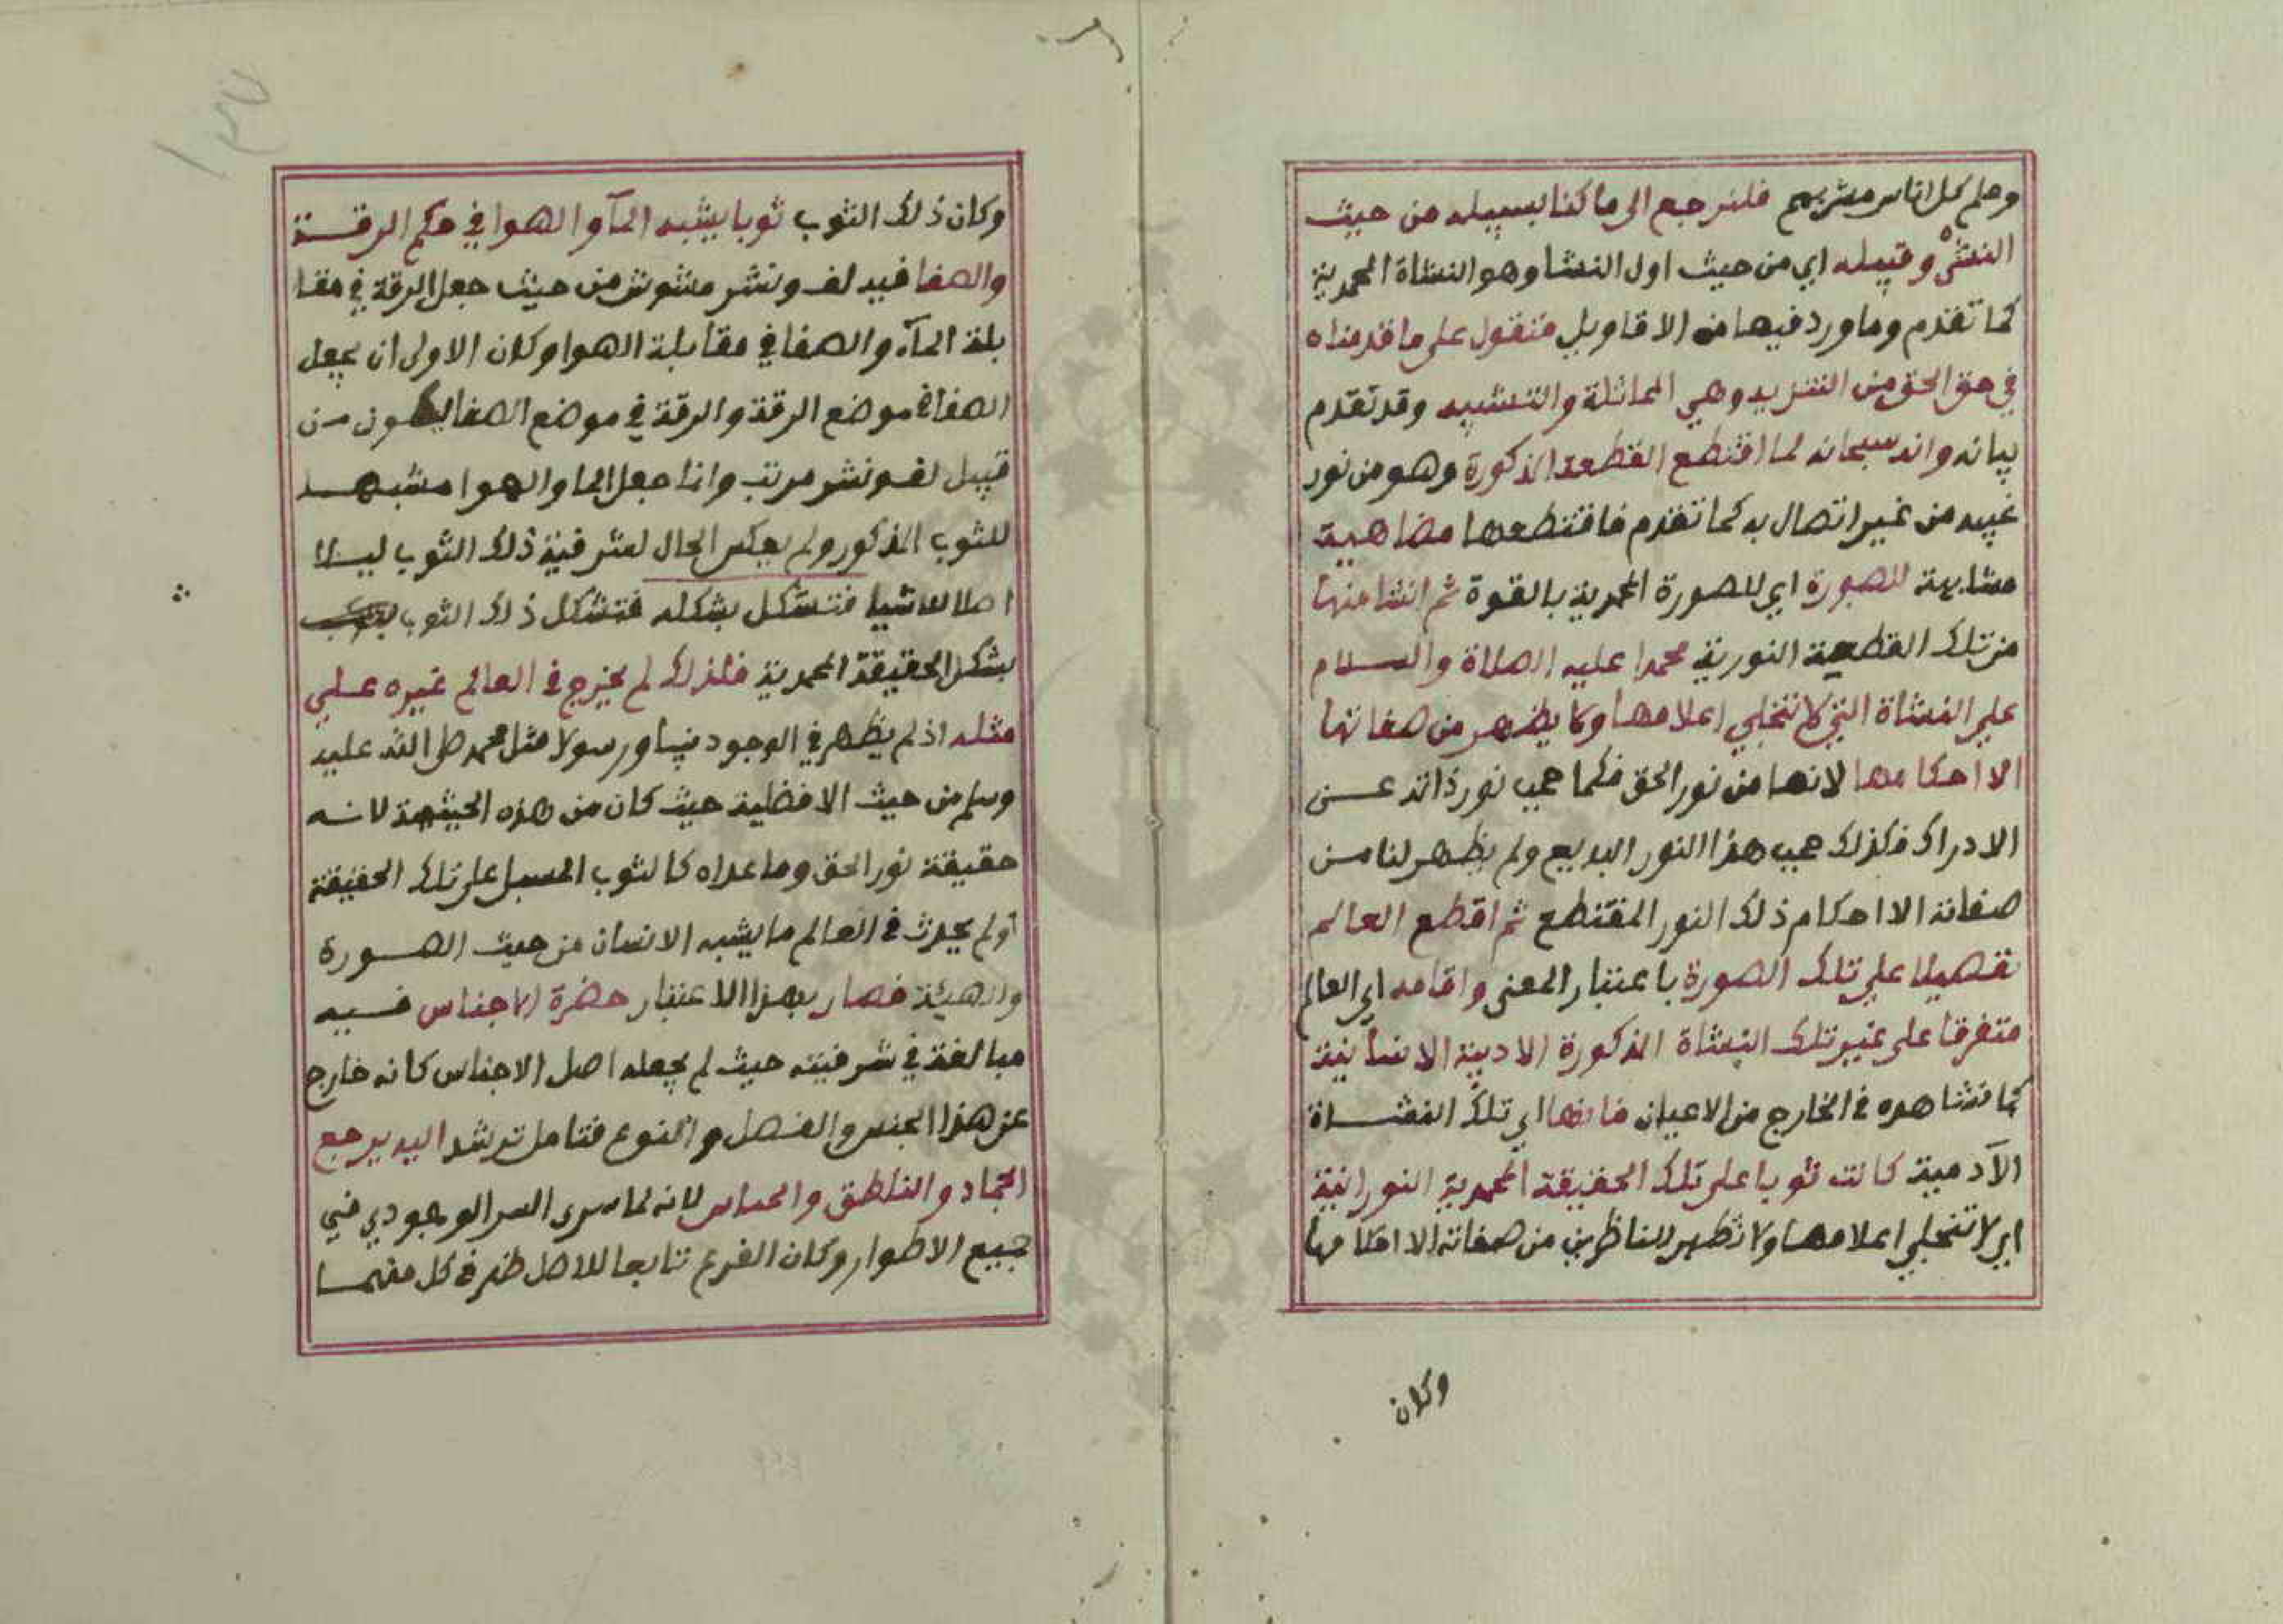 وعلم كل اناس مشربهم فلنرجع الى ما كنا بسبيله من حيث
النشئ وقبيله اي من حيث اول النشا وهو النشاة المحمدية
كما تقدم وما ورد فيها من الاقاويل فنقول على ما قدمناه
في حق الحق من التنزيه وهي المماثلة والتشبيه وقد تقدم
بيانه وانه سبحانه لما اقتطع القطعة المذكورة وهو من نور
غيبه من غير اتصال به كما تقدم فاقتطعها مضاهية
مشابهة للصورة اي للصورة المحمدية بالقوة ثم انشا منها
من تلك القطعة النورية محمدا عليه الصلاة والسلام
علي النشاة التي لا تنجلي اعلامها ولا يظهر من صفاتها
الا احكامها لانها من نور الحق فكما حجب نور ذاته عن
الادراك فكذلك حجب هذا النور البديع ولم يظهر لنا من
صفاته الا احكام ذلك النور المقتطع ثم اقطع العالم
تفصيلا علي تلك الصورة باعتبار المعنى واقامه اي العالم
متفرقا على غير تلك النشاة المذكورة الادمية الانسانية
كما نشاهده في الخارج من الاعيان فانها اي تلك النشاة
الآدمية كانت ثوبا على تلك الحقيقة المحمدية النورانية
اي لا تنجلي اعلامها ولا تظهر للناظرين من صفاته الا احكامها
وكان
وكان ذلك الثوب ثوبا يشبه المآ والهوا في حكم الرقة
والصفا فيه لف ونشر مشوش من حيث جعل الرقة في مقا
بلة المآء والصفا في مقابلة الهوا وكان الاولى ان يجعل
الصفا في موضع الرقة والرقة في موضع الصفا ليكون من
قبيل لف ونشر مرتب وانما جعل الما والهوا مشبها
للثوب المذكور ولم يعكس الحال لشرفية ذلك الثوب ليلا
اصلا للاشيا فتشكل بشكله فتشكل ذلك الثوب
بشكل الحقيقة المحمدية فلذلك لم يخرج في العالم غيره علي
مثله اذ لم يظهر في الوجود نبيا ورسولا مثل محمد صلى الله عليه
وسلم من حيث الافضلية حيث كان من هذه الحيثية لانه
حقيقة نور الحق وما عداه كالثوب المسبل على تلك الحقيقة
او لم يحدث في العالم ما يشبه الانسان من حيث الصورة
والهيئة فصار بهذا الاعتبار حضرة الاجناس فيه
مبالغة في شرفيته حيث لم يجعله اصل الاجناس كانه خارج
عن هذا الجنس والفصل والنوع فتامل ترشد اليه يرجع
الجماد والناطق والحساس لانه لما سرى السر الوجودي في
جميع الاطوار وكان الفرع تابعا للاصل ظهر في كل منهما